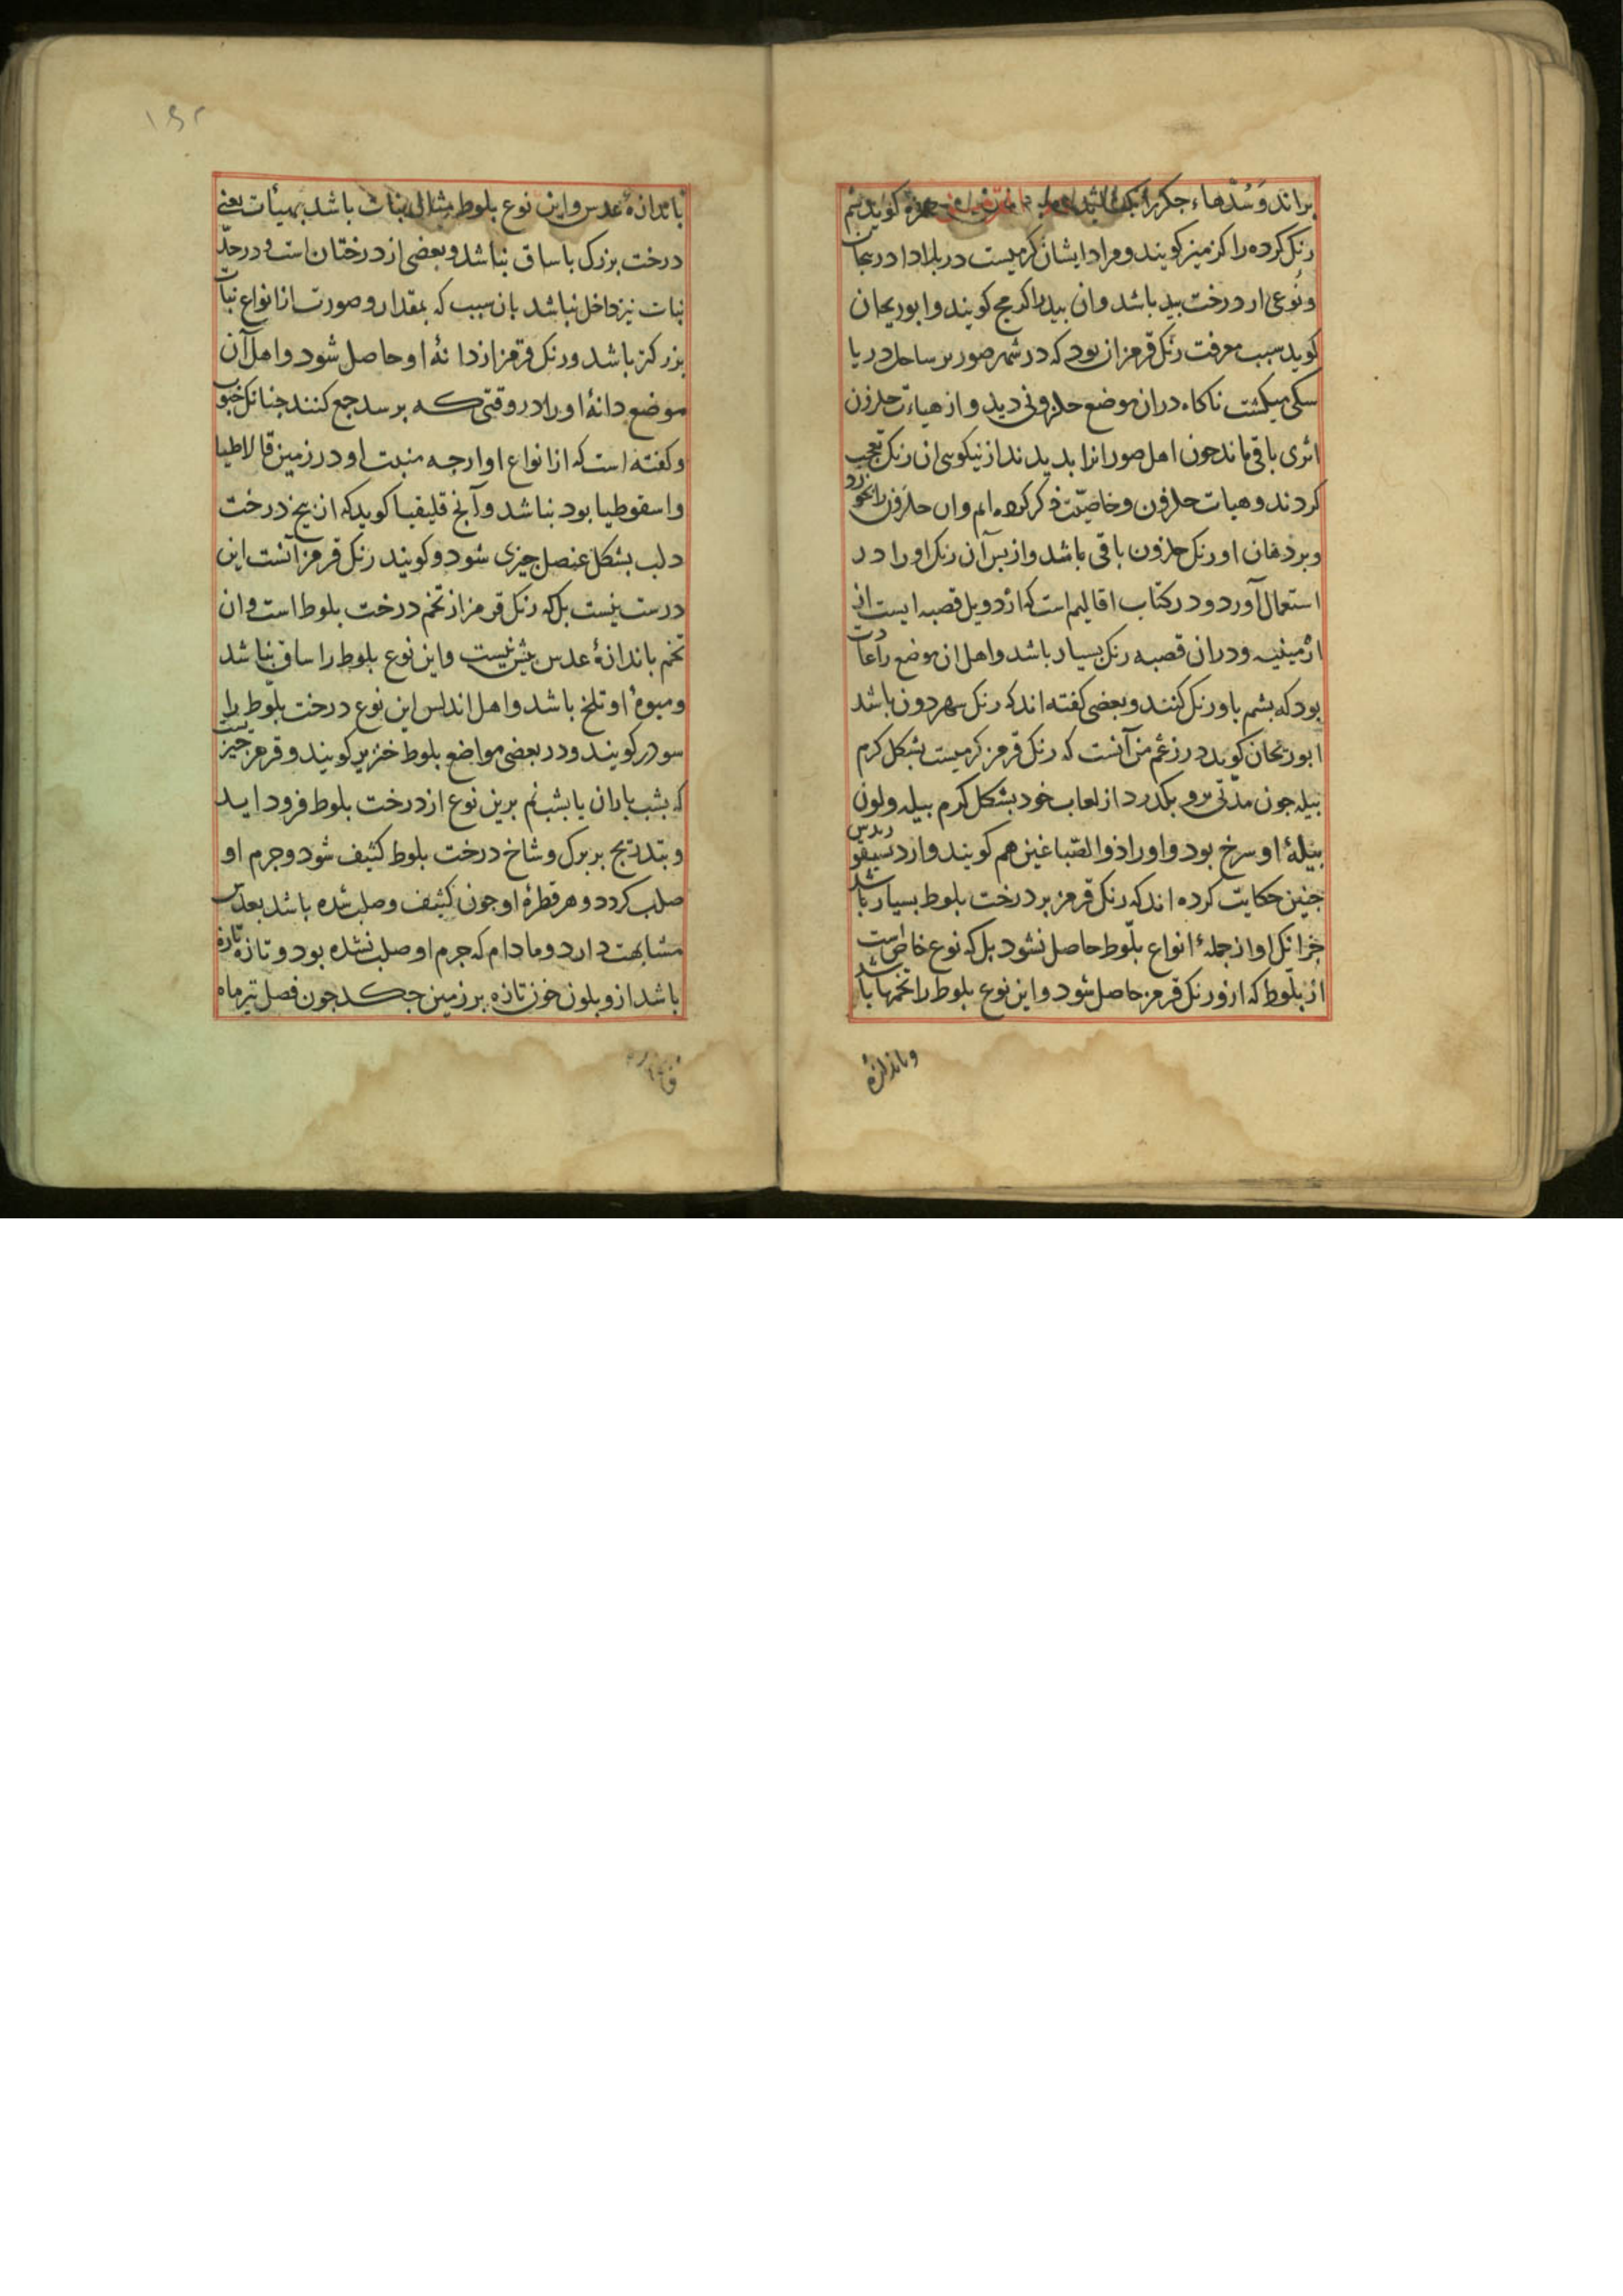 براند و سُدّهاء جکر را بکشاید حمزه کوید پشم
رنک کرده را کرمیز کویند و مراد ایشان کرمیست در بلاد ادربیجان
و نوعی از درخت بید باشد وان بید را کرمج کویند و ابوریحان
کوید سبب معرفت رنک قرمز ان بود که در شهر صور بر ساحل دریا
سکی میکشت ناکاه دران موضع حلزونی دید و از هیاءت حلزون
اثری باقی ماند جون اهل صور انرا بدیدند از نیکوی ان رنک تعجب
کردند و هیات حلزون و خاصیّت ذکر کرده ایم وان حلزون را بخورد
و بر دهان او رنک حلزون باقی باشد و از پس آن رنک او را در
استعمال آورد و در کتاب اقالیم است که اردویل قصبه ایست از
ارمینیه و دران قصبه رنک بسیار باشد و اهل ان موضع را عادت
بود که پشم باو رنک کنند و بعضی کفته اند که رنک سهردون باشد
ابوریحان کوید در زعم من آنست که رنک قرمز کرمیست بشکل کرم
بیله جون مدّتی برو بکذرد از لعاب خود بشکل کرم بیله و لون
بیلهٔ او سرخ بود و او را ذوالصباغین هم کویند و از دیسقوریدس
جنین حکایت کرده اند که رنک قرمز بر درخت بلوط بسیار باشد
جز انک او از جملهٔ انواع بلّوط حاصل نشود بل که نوع خاص است
از بلّوط که ازو رنک قرمز حاصل شود و این نوع بلوط را تخمها باشد
و باندازه
۱۶۲
باندازهٔ عدس و این نوع بلوط مثالی نبات باشد بهیئات یعنی
درخت بزرک با ساق نباشد و بعضی از درختان است و در حدّ
نبات نیز داخل نباشد بان سبب که بمقدار و صورت از انواع نبات
بزرکتر باشد و رنک قرمز از دانهٔ او حاصل شود و اهل آن
موضع دانهٔ او را در وقتی که برسد جمع کنند جنانک حبوب
و کفته است که از انواع او ارجه منبت او در زمین قالاطیا
و اسقوطیا بود نباشد و آنج قلیقیا کوید که ان بیخ درخت
دلب بشکل عنصل جیزی شود و کویند رنک قرمز آنست این
درست نیست بل که رنک قرمز از تخم درخت بلوط است وان
تخم باندازهٔ عدس بیش نیست و این نوع بلوط را ساق نباشد
و میوهٔ او تلخ باشد و اهل اندلس این نوع درخت بلّوط را
سودر کویند و در بعضی مواضع بلوط خنزیر کویند و قرمز جیزیست
که بشب باران یا بشب نم برین نوع از درخت بلوط فرود اید
و بتدریج بر برک و شاخ درخت بلوط کثیف شود و جرم او
صلب کردد و هر قطرهٔ او جون کثیف و صلب شده باشد بعدس
مشابهت دارد و مادام که جرم او صلب نشده بود و تازه تازه
باشد ازو بلون خون تازه بر زمین جکد جون فصل تیر ماه